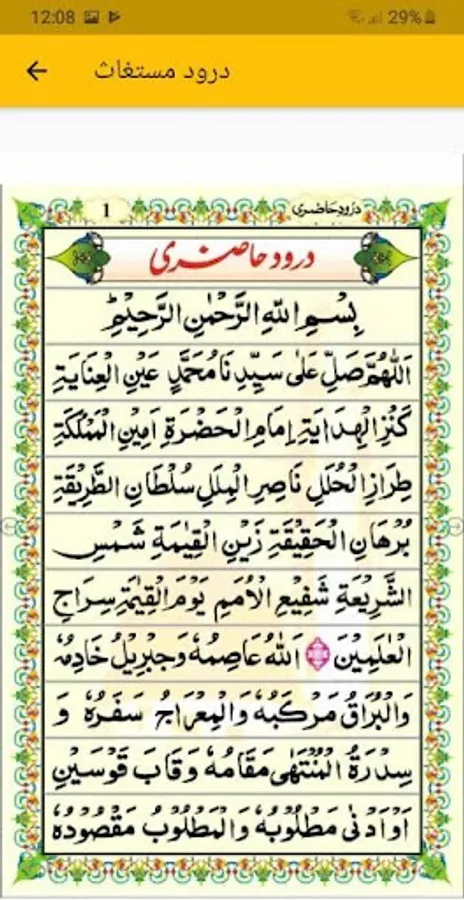 12:08 29%
درود مستغاث
1 درود حاضری
درود حاضری
بِسْمِ اللهِ الرَّحْمٰنِ الرَّحِيْمِ
اَللّٰهُمَّ صَلِّ عَلٰى سَيِّدِنَا مُحَمَّدٍ عَيْنِ الْعِنَايَةِ
كَنْزِ الْهِدَايَةِ اِمَامِ الْحَضْرَةِ اَمِيْنِ الْمَمْلَكَةِ
طِرَازِ الْحُلَلِ نَاصِرِ الْمِلَلِ سُلْطَانِ الطَّرِيْقَةِ
بُرْهَانِ الْحَقِيْقَةِ زَيْنِ الْقِيٰمَةِ شَمْسِ
الشَّرِيْعَةِ شَفِيْعِ الْاُمَمِ يَوْمَ الْقِيٰمَةِ سِرَاجِ
الْعٰلَمِيْنَ اَللهُ عَاصِمُهٗ وَجِبْرِيْلُ خَادِمُهٗ
وَالْبُرَاقُ مَرْكَبُهٗ وَالْمِعْرَاجُ سَفَرُهٗ وَ
سِدْرَةُ الْمُنْتَهٰى مَقَامُهٗ وَقَابَ قَوْسَيْنِ
اَوْ اَدْنٰى مَطْلُوْبُهٗ وَالْمَطْلُوْبُ مَقْصُوْدُهٗ